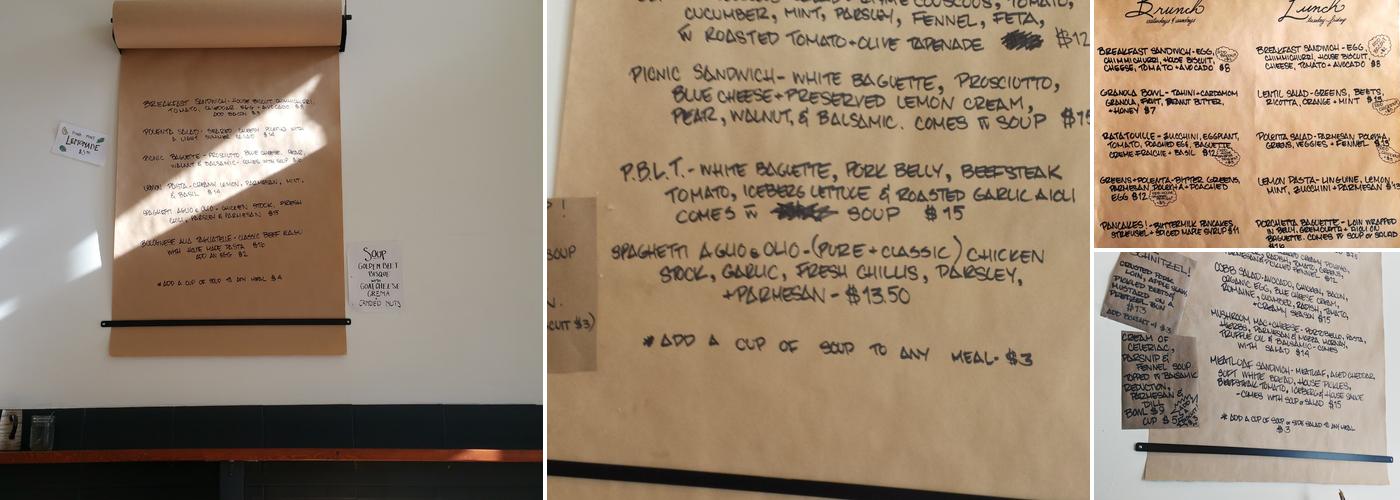 BREAKFAST SANDWICH - HOUSE BISCUIT, CHIMMICHURRI,
TOMATO, CHEDDAR EGG + AVOCADO
ADD BACON
POLENTA SALAD - SEARED POLENTA WITH
PICNIC BAGUETTE - PROSCIUTTO, BLUE CHEESE, PEAR,
WALNUT & BALSAMIC - COMES WITH SOUP
LEMON PASTA - CREAMY LEMON, PARMESAN, MINT,
& BASIL
SPAGHETTI AGLIO & OLIO - CHICKEN STOCK, FRESH
CHILI, PARSLEY & PARMESAN
BOLOGNESE ALLA TAGLIATELLE - CLASSIC BEEF RAGU
WITH HOUSE MADE PASTA
ADD AN EGG $2
*ADD A CUP OF SOUP TO ANY MEAL
LEMONADE
SOUP
GOLDEN BEET
BISQUE
WITH
GOAT CHEESE
CREMA
CANDIED NUTS
COUSCOUS, TOMATO,
CUCUMBER, MINT, PARSLEY, FENNEL, FETA,
W ROASTED TOMATO + OLIVE TAPENADE $12
PICNIC SANDWICH - WHITE BAGUETTE, PROSCIUTTO,
BLUE CHEESE + PRESERVED LEMON CREAM,
PEAR, WALNUT, & BALSAMIC. COMES W SOUP $15
P.B.L.T. - WHITE BAGUETTE, PORK BELLY, BEEFSTEAK
TOMATO, ICEBERG LETTUCE & ROASTED GARLIC AIOLI
COMES W SOUP $15
SPAGHETTI AGLIO & OLIO - (PURE + CLASSIC) CHICKEN
STOCK, GARLIC, FRESH CHILLIS, PARSLEY,
+ PARMESAN - $13.50
* ADD A CUP OF SOUP TO ANY MEAL - $3
SOUP
N.
CUIT $3)
Brunch
saturdays & sundays
BREAKFAST SANDWICH - EGG,
CHIMMICHURRI, HOUSE BISCUIT,
CHEESE, TOMATO + AVOCADO $8
GRANOLA BOWL - TAHINI + CARDAMOM
GRANOLA, FRUIT, PEANUT BUTTER,
+ HONEY $7
RATATOUILLE - ZUCCHINI, EGGPLANT,
TOMATO, POACHED EGG, BAGUETTE,
CREME FRAICHE + BASIL $12
GREENS + POLENTA - BITTER GREENS,
PARMESAN POLENTA + POACHED
EGG $12
PANCAKES! - BUTTERMILK PANCAKES,
STREUSEL + SPICED MAPLE SYRUP $11
Lunch
tuesday - friday
BREAKFAST SANDWICH - EGG,
CHIMMICHURRI, HOUSE BISCUIT,
CHEESE, TOMATO + AVOCADO $8
LENTIL SALAD - GREENS, BEETS,
RICOTTA, ORANGE + MINT
POLENTA SALAD - PARMESAN POLENTA,
GREENS, VEGGIES + FENNEL
LEMON PASTA - LINGUINE, LEMON,
MINT, ZUCCHINI + PARMESAN
PORCHETTA BAGUETTE - LOIN WRAPPED
IN BELLY, GREMOLATA + AIOLI ON
BAGUETTE. COMES W SOUP OR SALAD
SCHNITZEL!
CRUSTED PORK
LOIN, APPLE SLAW,
PICKLED BEETS &
MUSTARD ON A
PRETZEL BUN
$13
CREAM OF
CELERIAC,
PARSNIP &
FENNEL SOUP
TOPPED W BALSAMIC
REDUCTION,
PARMESAN &
DILL
BOWL $9
CUP $5
COBB SALAD - AVOCADO, CHICKEN, BACON,
ORGANIC EGG, BLUE CHEESE CREAM,
ROMAINE, CUCUMBER, RADISH, TOMATO,
$15
MUSHROOM MAC + CHEESE - PORTOBELLO, PASTA,
HERBS, PARMESAN & MOZZA MORNAY,
TRUFFLE OIL & BALSAMIC - COMES
WITH SALAD $14
MEATLOAF SANDWICH - MEATLOAF, AGED CHEDDAR,
SOFT WHITE BREAD, HOUSE PICKLES,
BEEFSTEAK TOMATO, ICEBERG & HOUSE SAUCE
- COMES WITH SOUP OR SALAD $15
* ADD A CUP OF SOUP OR SIDE SALAD TO ANY MEAL
$3